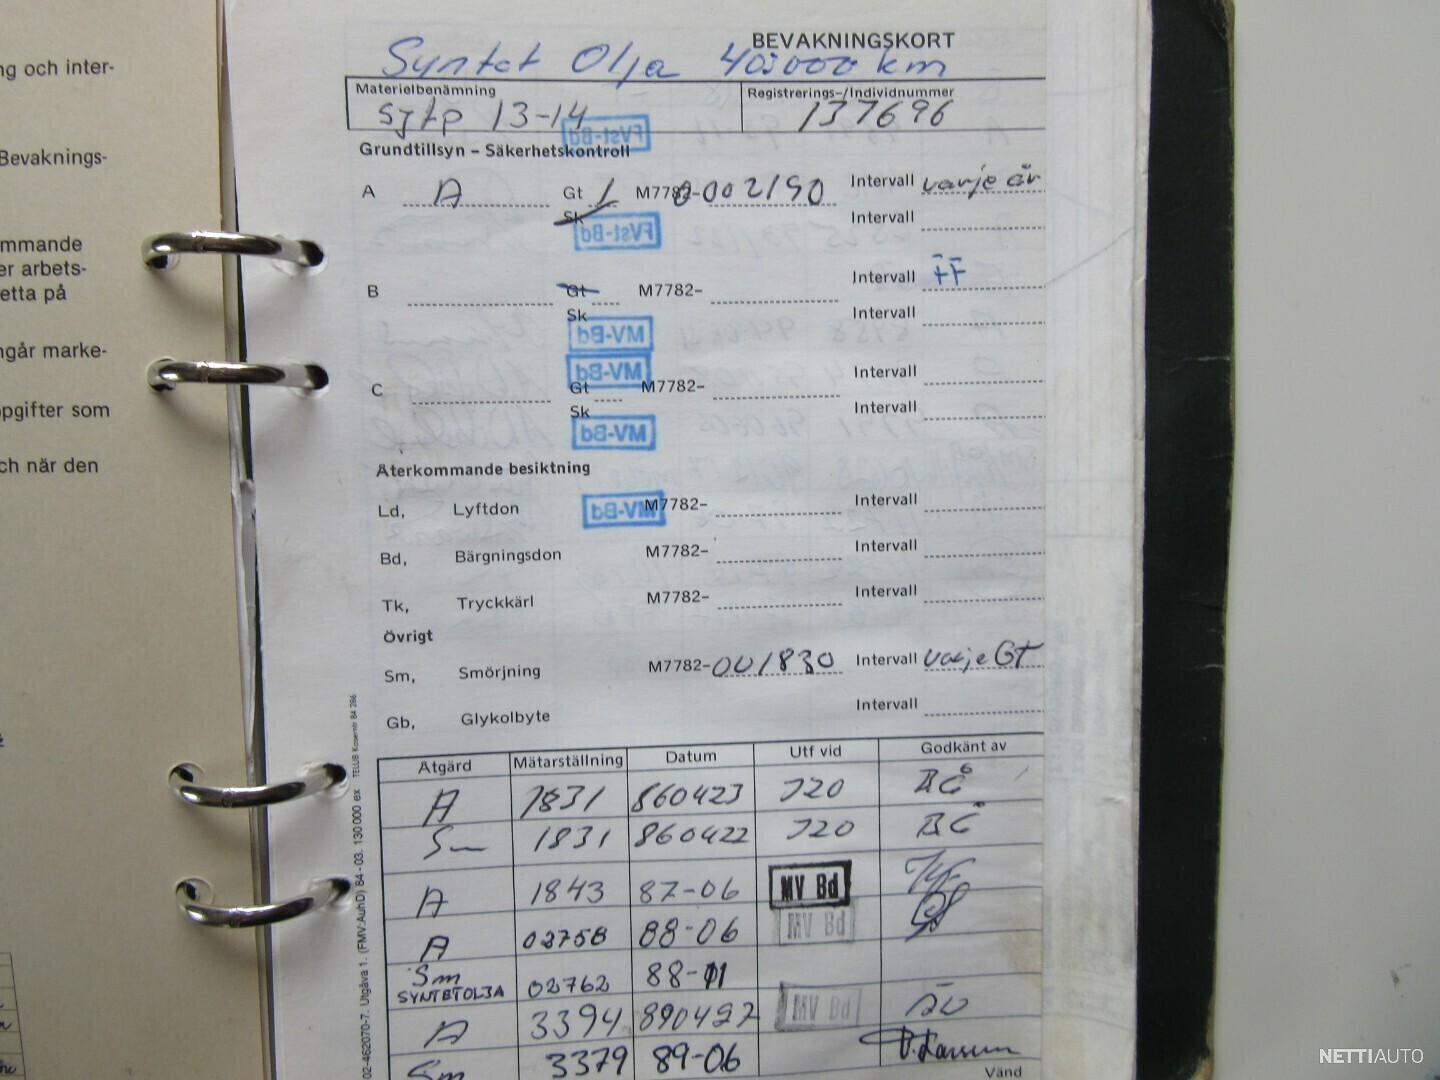 BEVAKNINGSKORT
Syntet Olja 400000 km
Materielbenämning Registrerings-/Individnummer
sjtp 13-14 137696
Grundtillsyn – Säkerhetskontroll
FVst-Bd
A A Gt 1 M7782-002190 Intervall varje år
Sk Intervall
FVst-Bd
B Gt M7782- Intervall FF
Sk Intervall
MV-Bd
MV-Bd
C Gt M7782- Intervall
Sk Intervall
MV-Bd
Återkommande besiktning
Ld, Lyftdon MV-Bd M7782- Intervall
Bd, Bärgningsdon M7782- Intervall
Tk, Tryckkärl M7782- Intervall
Övrigt
Sm, Smörjning M7782-001830 Intervall varje GT
Gb, Glykolbyte Intervall
Åtgärd Mätarställning Datum Utf vid Godkänt av
A 1831 860423 J20
Sm 1831 860422 J20
A 1843 87-06 MV Bd
A 02758 88-06 MV Bd
Sm
SYNTETOLJA 02762 88-11
A 3394 890427 MV Bd
Sm 3379 89-06
Vänd
02-462070-7. Utgåva 1. (FMV:AuhD) 84-03. 130 000 ex
ng och inter-
Bevaknings-
mmande
er arbets-
etta på
ngår marke-
ppgifter som
ch när den
NETTIAUTO